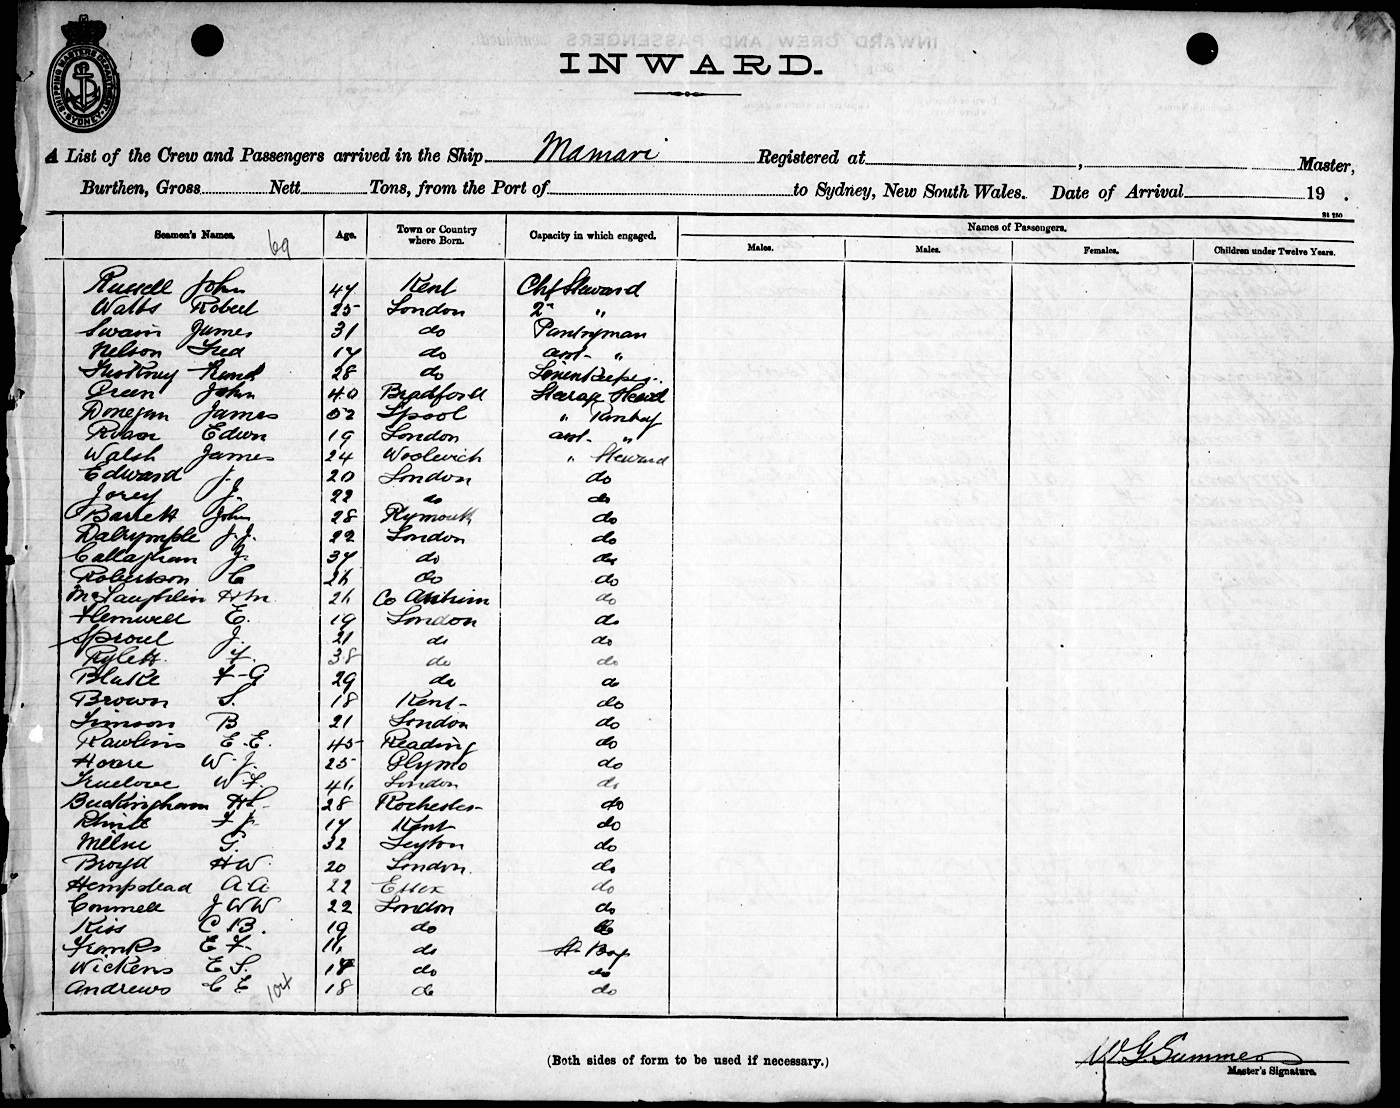 SHIPPING MASTERS DEPARTMENT SYDNEY
INWARD.
A List of the Crew and Passengers arrived in the Ship Mamari Registered at , Master,
Burthen, Gross Nett Tons, from the Port of to Sydney, New South Wales. Date of Arrival 19 .
Seamen's Names. 69 Age. Town or Country where Born. Capacity in which engaged. Names of Passengers.
Males. Males. Females. Children under Twelve Years.
Russell John 47 Kent Chf Steward
Watts Robert 25 London 2nd "
Swain James 31 do Pantryman
Nelson Fred 17 do asst. "
28 do Linenkeeper
Green John 40 Bradford Steerage Steward
Donegan James 52 L'pool " Pantry
Edwin 19 London asst. "
Walsh James 24 Woolwich " Steward
Edward J. 20 London do
Jorey J. 22 do do
Barrett John 28 Plymouth do
Dalrymple J.J. 22 London do
Callaghan J. 37 do do
Robertson C 26 do do
McLaughlin Hm 26 Co Antrim do
E. 19 London do
Sproul J. 21 do do
Rylett F. 38 do do
Blake F-G 29 do do
Brown S. 18 Kent do
Timson B 21 London do
Rawlins E.E. 45 Reading do
Hoare W.J. 25 Plymo do
Truelove W.F. 46 London do
Buckingham H L 28 Rochester do
F J 17 Kent do
Milne G. 32 Leyton do
Broyd H W. 20 London do
Hempstead A A 22 Essex do
Connell J W W 22 London do
Kiss C B. 19 do do
Franks E F. 16 do St Boy
Wickens E S. 17 do do
Andrews C E. 104 18 do do
(Both sides of form to be used if necessary.)
W G Summers
Master's Signature.